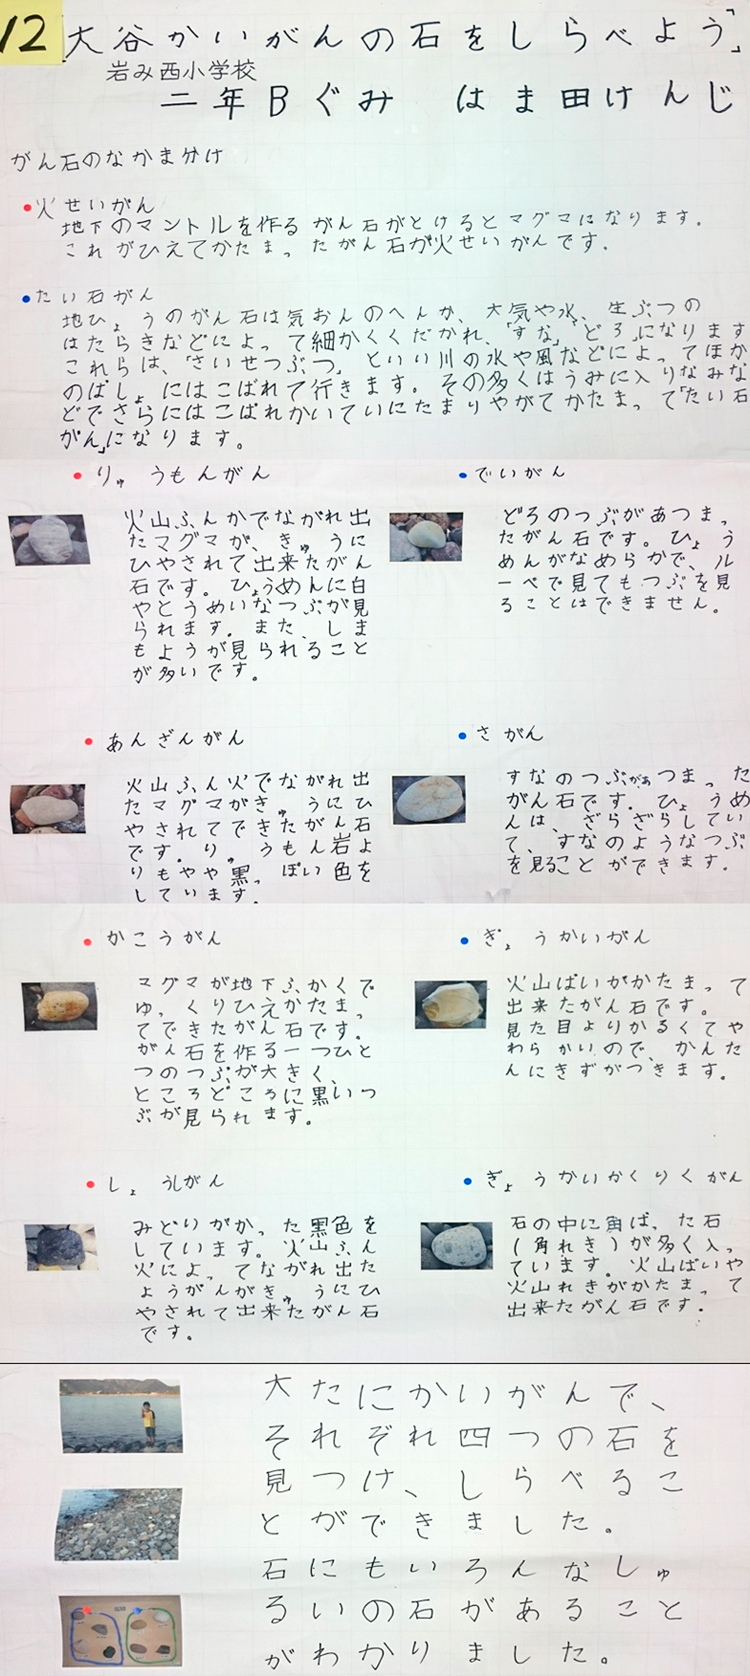 12
「大谷かいがんの石をしらべよう」
岩み西小学校
二年Bぐみ　はま田けんじ
がん石のなかま分け
火せいがん
地下のマントルを作るがん石がとけるとマグマになります。
これがひえてかたまったがん石が火せいがんです。
たい石がん
地ひょうのがん石は気おんのへんか、大気や水、生ぶつの
はたらきなどによって細かくくだかれ、「すな」「どろ」になります
これらは、「さいせつぶつ」といい川の水や風などによってほか
のばしょにはこばれて行きます。その多くはうみに入りなみな
どでさらにはこばれかいていにたまりやがてかたまって「たい石
がん」になります。
りゅうもんがん
火山ふんかでながれ出
たマグマが、きゅうに
ひやされて出来たがん
石です。ひょうめんに白
やとうめいなつぶが見
られます。また、しま
もようが見られること
が多いです。
でいがん
どろのつぶがあつまっ
たがん石です。ひょう
めんがなめらかで、ル
ーペで見てもつぶを見
ることはできません。
あんざんがん
火山ふん火でながれ出
たマグマがきゅうにひ
やされてできたがん石
です。りゅうもん岩よ
りもやや黒っぽい色を
しています。
さがん
すなのつぶがあつまった
がん石です。ひょうめ
んは、ざらざらしてい
て、すなのようなつぶ
を見ることができます。
かこうがん
マグマが地下ふかくで
ゆっくりひえかたまっ
てできたがん石です。
がん石を作る一つひと
つのつぶが大きく、
ところどころに黒いつ
ぶが見られます。
ぎょうかいがん
火山ばいがかたまって
出来たがん石です。
見た目よりかるくてや
わらかいので、かんた
んにきずがつきます。
しょうしがん
みどりがかった黒色を
しています。火山ふん
火によってながれ出た
ようがんがきゅうにひ
やされて出来たがん石
です。
ぎょうかいかくりくがん
石の中に角ばった石
(角れき)が多く入っ
ています。火山ばいや
火山れきがかたまって
出来たがん石です。
大たにかいがんで、
それぞれ四つの石を
見つけ、しらべるこ
とができました。
石にもいろんなしゅ
るいの石があること
がわかりました。